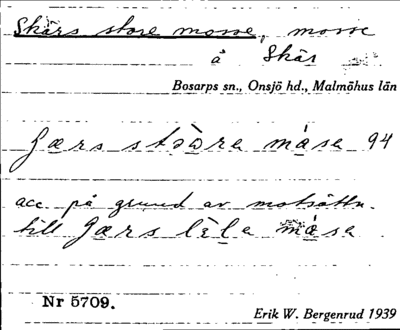 Skärs store mosse, mosse
å Skär
Bosarps sn., Onsjö hd., Malmöhus län
stɔ̀ra mása 94
acc på grund av motsättn.
till lìla mása
Nr 5709.
Erik W. Bergenrud 1939